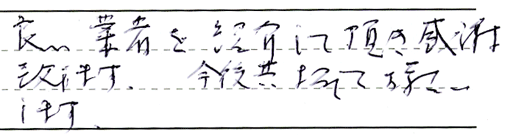 良い業者を紹介して頂き感謝
致します。 今後共よろしくお願い
します。